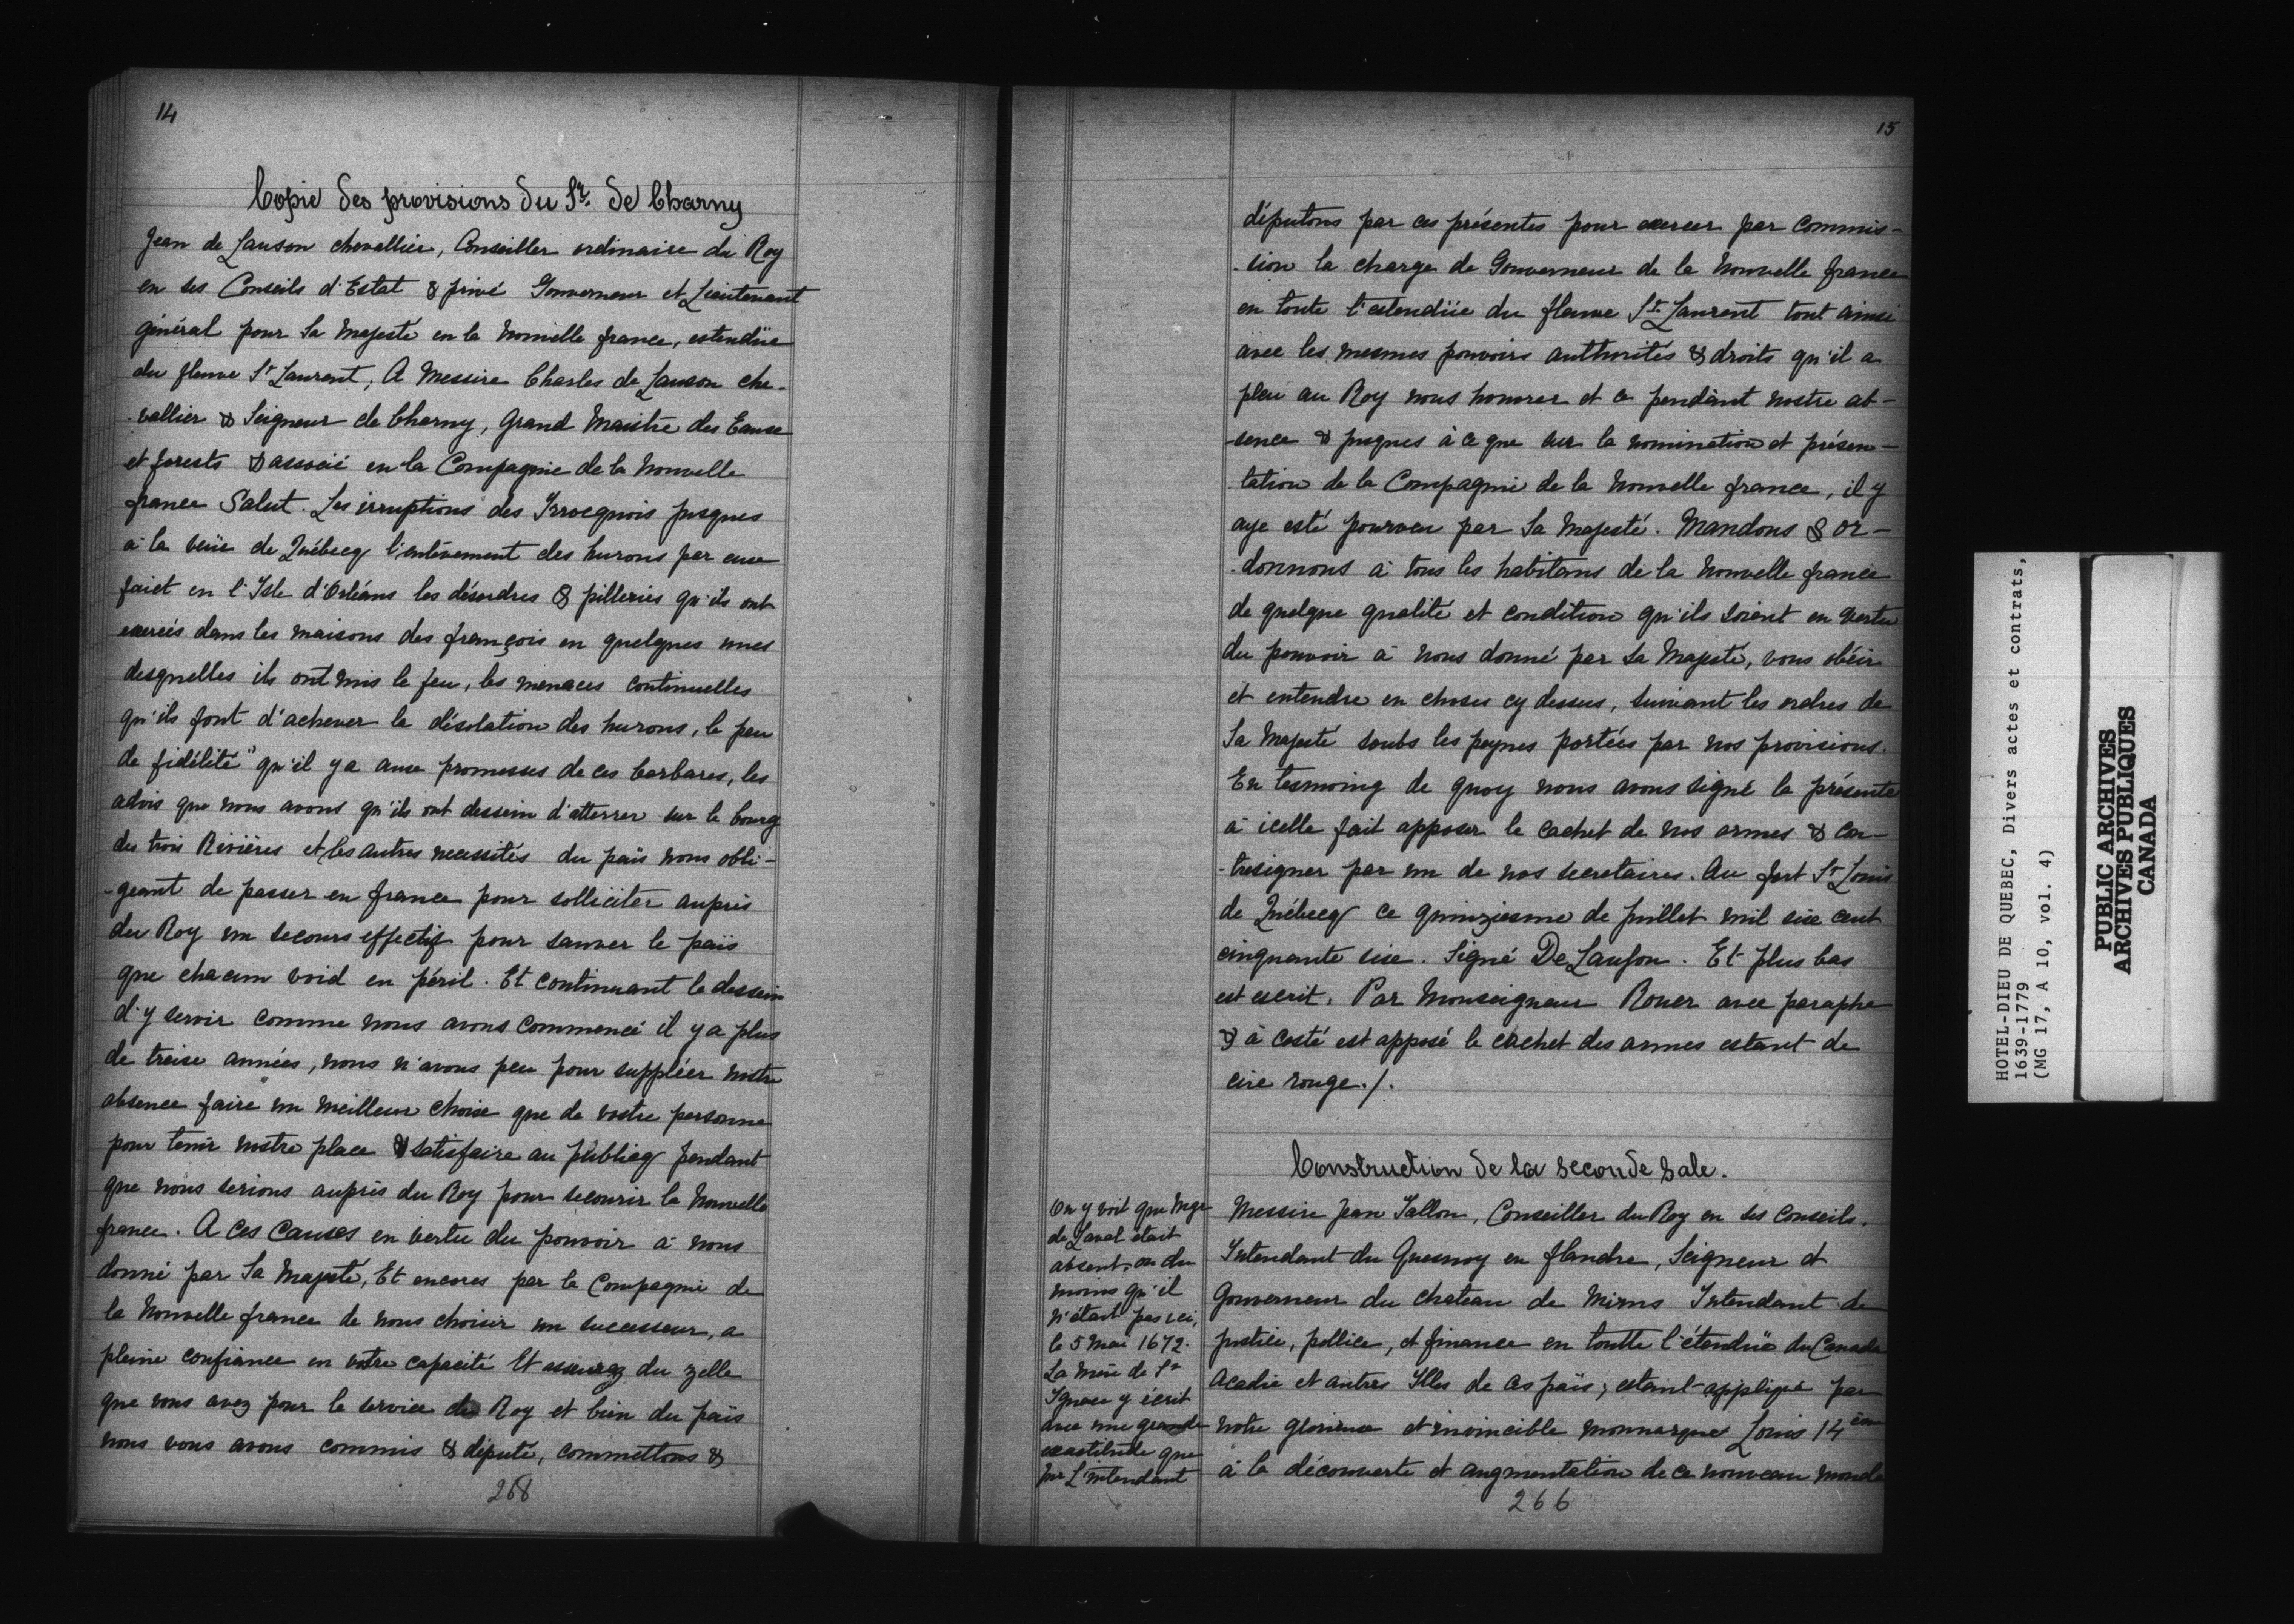 14
Copie des provisions du Sr. de Charny
Jean de Lauson chevallier, Conseiller ordinaire du Roy
en ses Conseils d'Estat & privé Gouverneur et Lieutenant
général pour Sa Majesté en la Nouvelle france, estendüe
du fleuve St Laurent, A Messire Charles de Lauson che-
-vallier & Seigneur de Charny, Grand Maistre des Eaux
et forests & associé en la Compagnie de la Nouvelle
france Salut. Les irruptions des Yrrocquois jusques
à la veüe de Québecq l'enlèvement des hurons par eux
faict en l'Isle d'Orléans les désordres & pilleries qu'ils ont
exercés dans les maisons des françois en quelques unes
desquelles ils ont mis le feu, les menaces continuelles
qu'ils font d'achever la désolation des hurons, le peu
de fidélité qu'il y a aux promesses de ces barbares, les
advis que nous avons qu'ils ont dessein d'atterrer sur le bourg
des trois Rivières et les autres necessités du païs nous obli-
-geant de passer en france pour solliciter auprès
du Roy un secours effectif pour sauver le païs
que chacun void en péril. Et continuant le dessein
d'y servir comme nous avons commencé il y a plus
de treise années, nous n'avons peu pour suppléer nostre
absence faire un meilleur choix que de vostre personne
pour tenir nostre place & satisfaire au publicq pendant
que nous serions auprès du Roy pour secourir la Nouvelle
france. A ces causes en vertu du pouvoir à nous
donné par Sa Majesté, Et encores par la Compagnie de
la Nouvelle france de nous choisir un successeur, a
pleine confiance en votre capacité Et assurez du zelle
que vous avez pour le service du Roy et bien du païs
nous vous avons commis & député, commettons &
268
15
députons par ces présentes pour exercer par commis-
-sion la charge de Gouverneur de la Nouvelle france
en toute l'estendüe du fleuve St Laurent tout ainsi
avec les mesmes pouvoirs authorités & droits qu'il a
pleu au Roy nous honorer et ce pendant nostre ab-
-sence & jusques à ce que sur la nomination et présen-
-tation de la Compagnie de la Nouvelle france, il y
aye esté pourveu par Sa Majesté. Mandons & or-
-donnons à tous les habitans de la Nouvelle france
de quelque qualité et condition qu'ils soient en vertu
du pouvoir à nous donné par Sa Majesté, vous obéir
et entendre en choses cy dessus, suivant les ordres de
Sa Majesté soubs les peynes portées par nos provisions.
En tesmoing de quoy nous avons signé la présente
à icelle fait apposer le cachet de nos armes & con-
-tresigner par un de nos secretaires. Au fort St Louis
de Québecq ce quinziesme de juillet mil six cent
cinquante six. Signé De Lauson. Et plus bas
est escrit. Par Monseigneur Rouer avec paraphe
& à costé est apposé le cachet des armes estant de
cire rouge./.
Construction de la seconde sale.
Messire Jean Tallon, Conseiller du Roy en ses conseils.
Intendant du Quesnoy en flandre, Seigneur et
Gouverneur du chateau de Mirns Intendant de
justice, pollice, et finance en toutte l'étendüe du Canada
Acadie et autres Illes de ces païs; estant appliqué par
notre glorieux et invincible monnarque Louis 14ème
à la découverte et augmentation de ce nouveau monde
On y voit que Mgr
de Laval était
absent, ou du
moins qu'il
n'était pas ici,
le 5 mai 1672.
La mère de St
Ignace y écrit
avec une grande
exactitude que
Mr L'intendant
266
HOTEL-DIEU DE QUEBEC, Divers actes et contrats,
1639-1779
(MG 17, A 10, vol. 4)
PUBLIC ARCHIVES
ARCHIVES PUBLIQUES
CANADA